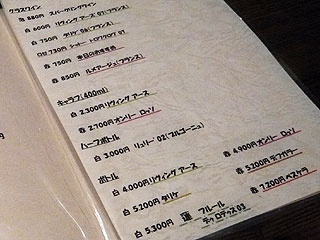 グラスワイン
泡 880円 スパークリングワイン
白 600円 リヴィング アース 01(フランス)
白 750円 タリケ 06(フランス)
ロゼ 730円 シャトー
赤 750円 本日の
赤 850円 ルメアージュ(フランス)
キャラフ(400ml)
白 2,300円 リヴィング アース
赤 2,700円 オンリー ロッソ
ハーフボトル
白 3,000円 リュリー '02(ブルゴーニュ)
ボトル
白 4,000円 リヴィング アース
赤 4,900円 オンリー ロッソ
白 5,200円 タリケ
赤 5,200円
白 5,300円 蓮 フルール
赤 7,200円 ペスケラ
デュ ロテュス 03
円